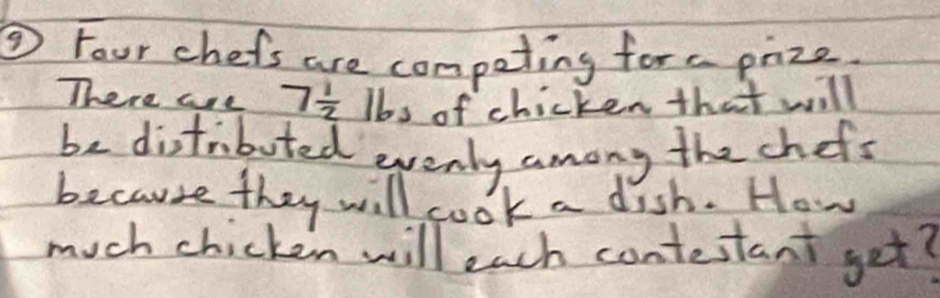 ⑨ Four chefs are competing for a prize.
There are 7 1/2 lbs of chicken that will
be distributed evenly among the chefs
because they will cook a dish. How
much chicken will each contestant get?